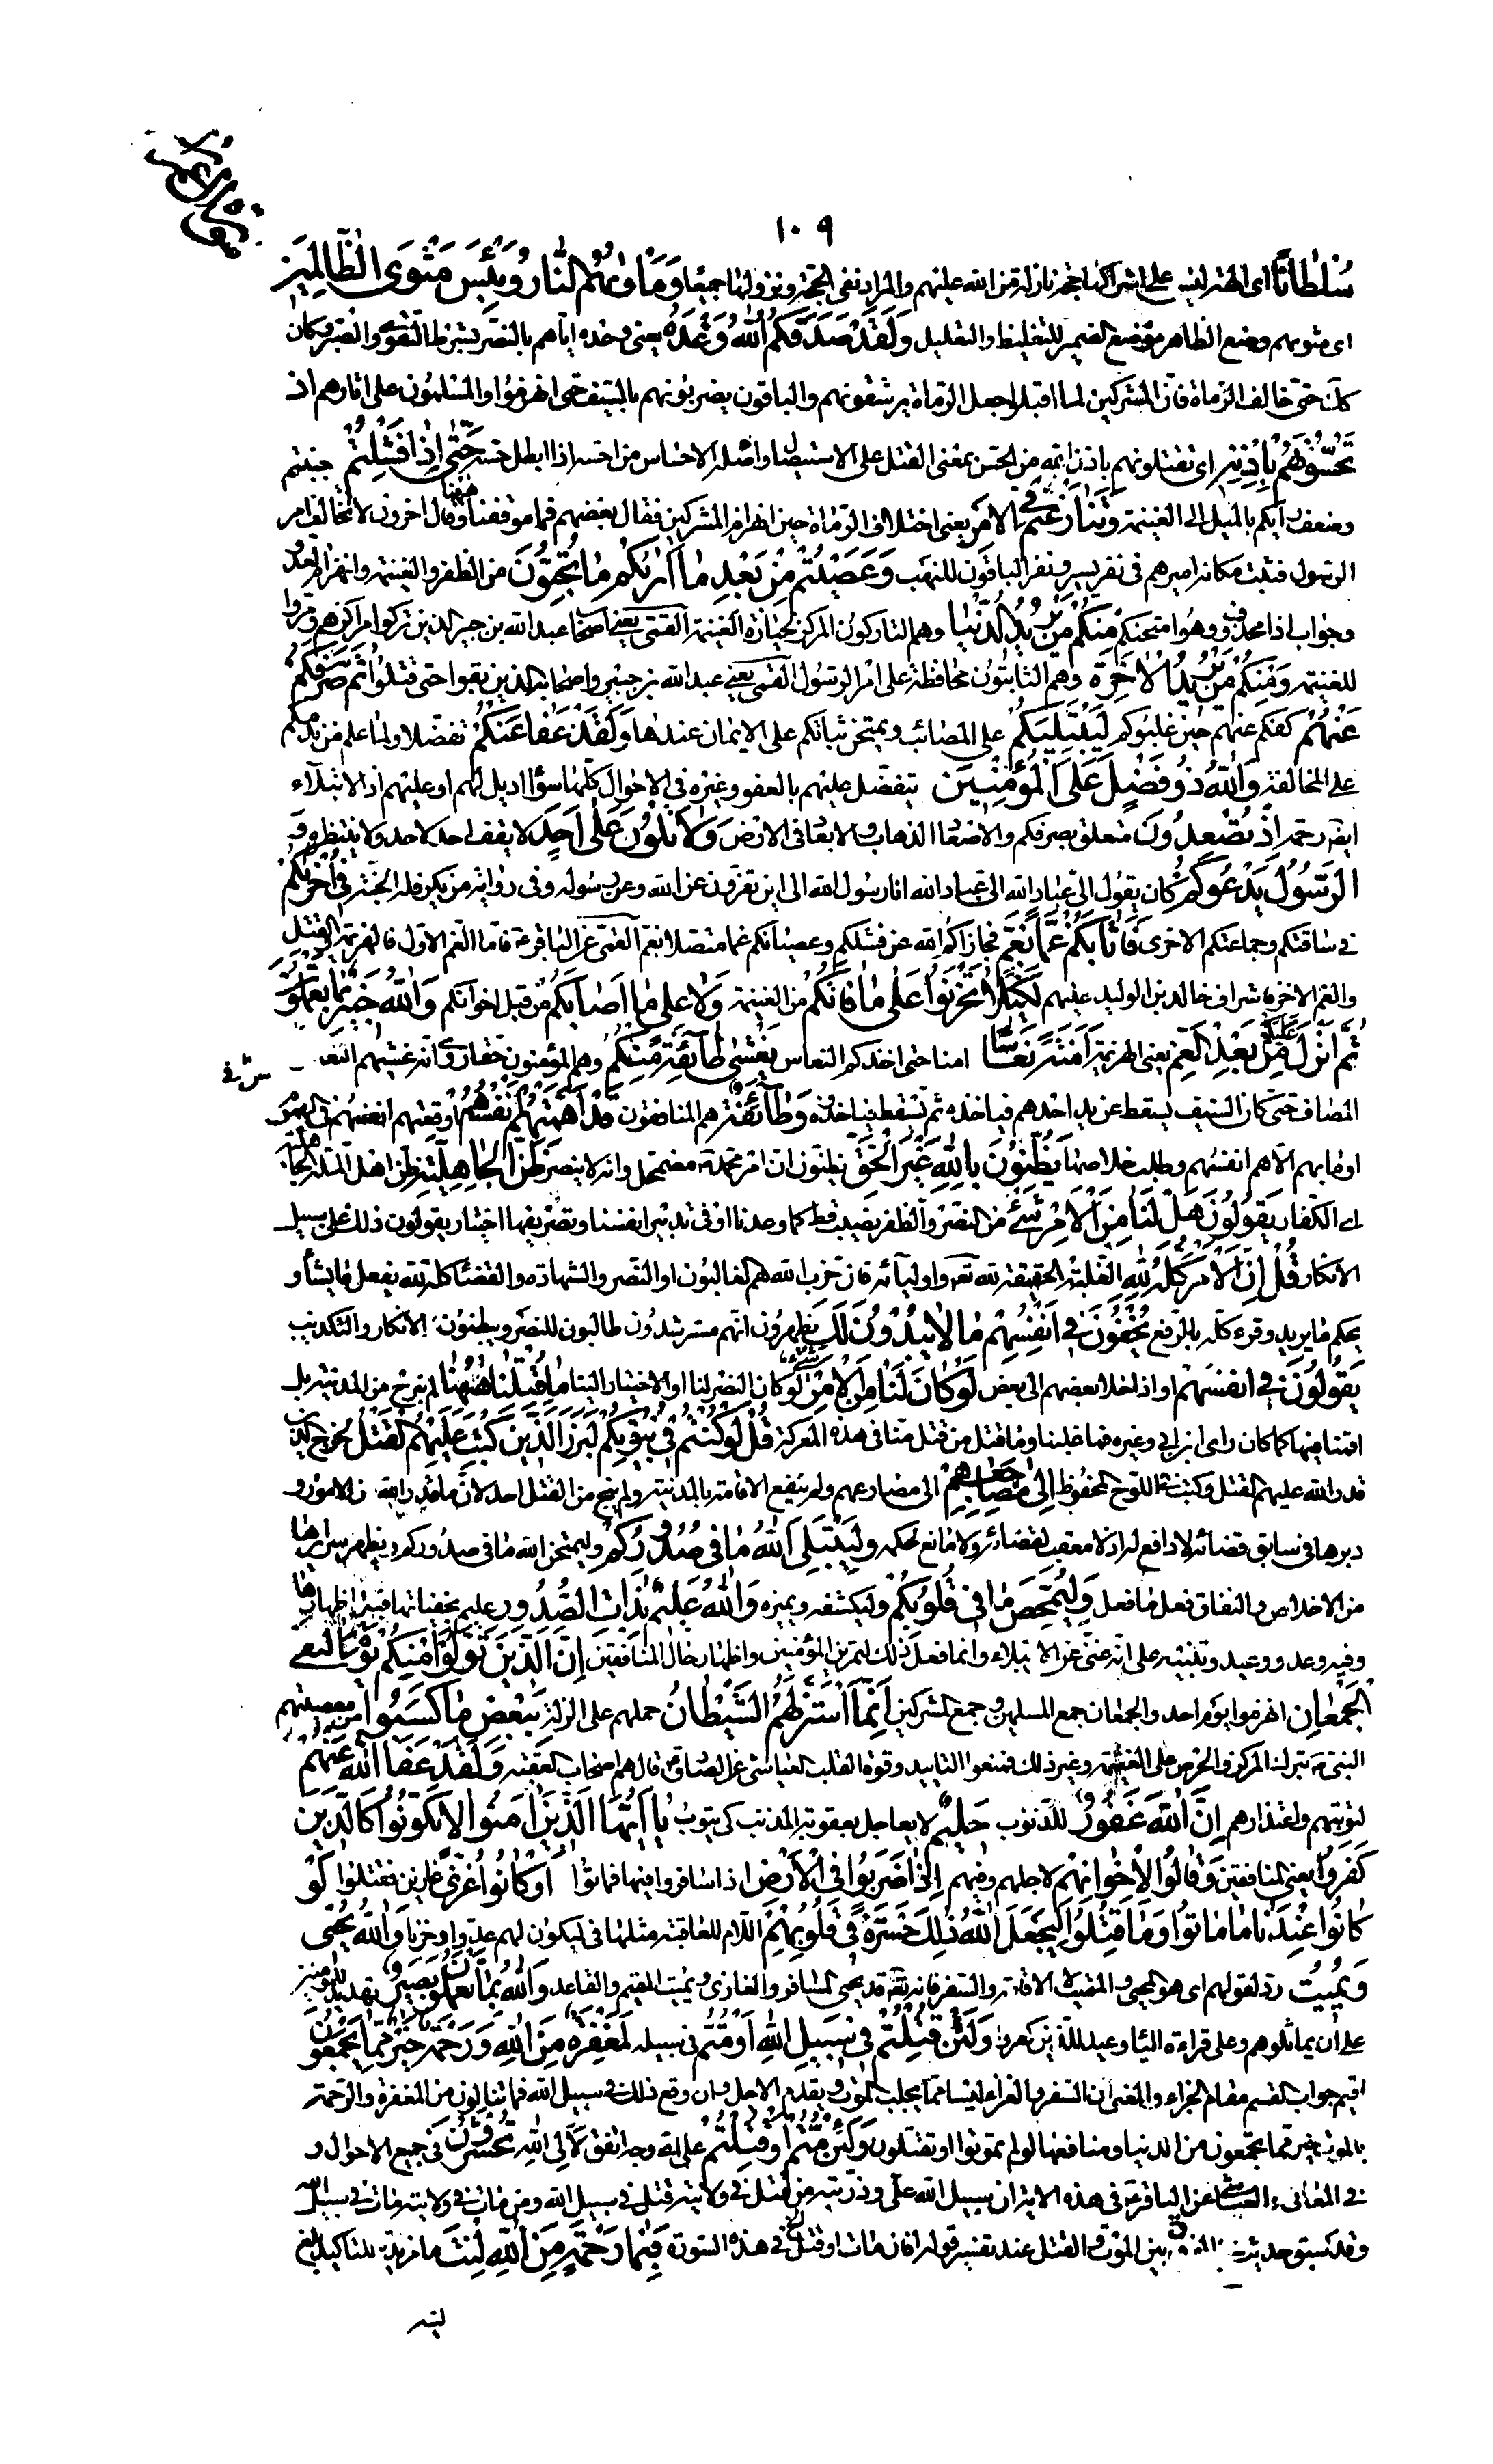 ١٠٩
سُلْطَانًا اى الهة ليس على اشراكها حجة نازلة من الله عليهم والمراد نفى الحجة ونزولها جميعا وَمَأْوٰيهُمُ النَّارُ وَبِئْسَ مَثْوَى الظَّالِمِينَ
اى مثويهم وضع الظاهر موضع الضمير للتغليظ والتعليل وَلَقَدْ صَدَقَكُمُ اللهُ وَعْدَهُ يعنى وعده اياهم بالنصر بشرط التقوى والصبر وكان
كذلك حتى خالف الرماة فان المشركين لما اقبلوا جعل الرماة يرشقونهم والباقون يضربونهم بالسيف حتى انهزموا والمسلمون على اثارهم اذ
تَحُسُّونَهُمْ بِإِذْنِهِ اى تقتلونهم باذن الله من الحس بمعنى القتل على الاستيصال واصله الاحساس من احسه اذا ابطل حسه حَتّٰى إِذَا فَشِلْتُمْ جبنتم
وضعف رأيكم بالميل الى الغنيمة وَتَنَازَعْتُمْ فِي الْأَمْرِ يعنى اختلاف الرماة حين انهزام المشركين فقال بعضهم فما موقفنا ههنا وقال اخرون لا نخالف امر
الرسول فثبت مكانه اميرهم فى نفر يسير ونفر الباقون للنهب وَعَصَيْتُمْ مِنْ بَعْدِ مَا أَرٰيكُمْ مَا تُحِبُّونَ من الظفر والغنيمة وانهزام العدو
وجواب اذا محذوف وهو امتحنكم مِنْكُمْ مَنْ يُرِيدُ الدُّنْيَا وهم التاركون المركز لحيازة الغنيمة القمى يعنى اصحاب عبد الله بن جبير الذين تركوا مراكزهم ومروا
للغنيمة وَمِنْكُمْ مَنْ يُرِيدُ الْآخِرَةَ وهم الثابتون محافظة على امر الرسول القمى يعنى عبد الله بن جبير واصحابه الذين بقوا حتى قتلوا ثُمَّ صَرَفَكُمْ
عَنْهُمْ كفكم عنهم حين غلبوكم لِيَبْتَلِيَكُمْ على المصائب ويمتحن ثباتكم على الايمان عندها وَلَقَدْ عَفَا عَنْكُمْ تفضلا ولما علم من ندمكم
على المخالفة وَاللهُ ذُو فَضْلٍ عَلَى الْمُؤْمِنِينَ يتفضل عليهم بالعفو وغيره فى الاحوال كلها سواء اديل لهم او عليهم اذ الابتلاء
ايضا رحمة إِذْ تُصْعِدُونَ متعلق بصرفكم والاصعاد الذهاب والابعاد فى الارض وَلَا تَلْوُونَ عَلٰى أَحَدٍ لا يقف احد لاحد ولا ينتظره وَ
الرَّسُولُ يَدْعُوكُمْ كان يقول الى عباد الله الى عباد الله انا رسول الله الى اين تفرون عن الله وعن رسوله وفى رواية من يكر فله الجنة فِي أُخْرٰيكُمْ
فى ساقتكم وجماعتكم الاخرى فَأَثَابَكُمْ غَمًّا بِغَمٍّ فجازاكم الله عن فشلكم وعصيانكم غما متصلا بغم القمى عن الباقر ع فاما الغم الاول فالهزيمة والقتل
والغم الاخر فاشراف خالد بن الوليد عليهم لِكَيْلَا تَحْزَنُوا عَلٰى مَا فَاتَكُمْ من الغنيمة وَلَا على مَا أَصَابَكُمْ من قتل اخوانكم وَاللهُ خَبِيرٌ بِمَا تَعْمَلُونَ
ثُمَّ أَنْزَلَ عَلَيْكُمْ مِنْ بَعْدِ الْغَمِّ يعنى الهزيمة أَمَنَةً نُعَاسًا امنا حتى اخذكم النعاس يَغْشٰى طَائِفَةً مِنْكُمْ وهم المؤمنون حقا روى انه غشيهم النعاس فى
المصاف حتى كان السيف يسقط عن يد احدهم فياخذه ثم تسقط فياخذه وَطَائِفَةٌ هم المنافقون قَدْ أَهَمَّتْهُمْ أَنْفُسُهُمْ اوقعتهم انفسهم فى الهموم
او ما بهم الا هم انفسهم وطلب خلاصها يَظُنُّونَ بِاللهِ غَيْرَ الْحَقِّ يظنون ان امر محمد ص مضمحل وانه لا ينصر ظَنَّ الْجَاهِلِيَّةِ ظن اهل الملة الجاهلية
اى الكفار يَقُولُونَ هَلْ لَنَا مِنَ الْأَمْرِ مِنْ شَيْءٍ من النصر والظفر نصيب قط كما وعدنا او فى تدبير انفسنا وتصريفها اختيار يقولون ذلك على سبيل
الانكار قُلْ إِنَّ الْأَمْرَ كُلَّهُ لِلّٰهِ الغلبة الحقيقة لله تعالى واوليائه فان حزب الله هم الغالبون او النصر والشهادة والقضاء كله لله يفعل ما يشاء و
يحكم ما يريد وقرء كله بالرفع يُخْفُونَ فِي أَنْفُسِهِمْ مَا لَا يُبْدُونَ لَكَ يظهرون انهم مسترشدون طالبون للنصر ويبطنون الانكار والتكذيب
يَقُولُونَ فى انفسهم او اذا خلا بعضهم الى بعض لَوْ كَانَ لَنَا مِنَ الْأَمْرِ شَيْءٌ لو كان النصر لنا او الاختيار الينا مَا قُتِلْنَا هٰهُنَا لم نبرح من المدينة بل
اقمنا فيها كما كان راى ابن ابى وغيره فما غلبنا وما قتل من قتل منا فى هذه المعركة قُلْ لَوْ كُنْتُمْ فِي بُيُوتِكُمْ لَبَرَزَ الَّذِينَ كُتِبَ عَلَيْهِمُ الْقَتْلُ لخرج الذين
قدر الله عليهم القتل وكتب فى اللوح المحفوظ إِلٰى مَضَاجِعِهِمْ الى مصارعهم ولم ينفع الاقامة بالمدينة ولم ينج من القتل احد لان ما قدر الله من الامور و
دبرها فى سابق قضائه لا دافع له اذ لا معقب لقضائه ولا مانع لحكمه وَلِيَبْتَلِيَ اللهُ مَا فِي صُدُورِكُمْ وليمتحن الله ما فى صدوركم ويظهر سرايرها
من الاخلاص والنفاق فعل ما فعل وَلِيُمَحِّصَ مَا فِي قُلُوبِكُمْ وليكشفه ويميزه وَاللهُ عَلِيمٌ بِذَاتِ الصُّدُورِ عليم بخفياتها قبل اظهارها
وفيه وعد ووعيد وتنبيه على انه غنى عن الابتلاء وانما فعل ذلك لتمرين المؤمنين واظهار حال المنافقين إِنَّ الَّذِينَ تَوَلَّوْا مِنْكُمْ يَوْمَ الْتَقَى
الْجَمْعَانِ انهزموا يوم احد والجمعان جمع المسلمين وجمع المشركين إِنَّمَا اسْتَزَلَّهُمُ الشَّيْطَانُ حملهم على الزلة بِبَعْضِ مَا كَسَبُوا من معصيتهم
النبى ص بترك المركز والحرص على الغنيمة وغير ذلك فمنعوا التاييد وقوة القلب العياشى عن الصادق ع قال هم اصحاب العقبة وَلَقَدْ عَفَا اللهُ عَنْهُمْ
لتوبتهم واعتذارهم إِنَّ اللهَ غَفُورٌ للذنوب حَلِيمٌ لا يعاجل بعقوبة المذنب كى يتوب يَا أَيُّهَا الَّذِينَ آمَنُوا لَا تَكُونُوا كَالَّذِينَ
كَفَرُوا يعنى المنافقين وَقَالُوا لِإِخْوَانِهِمْ لاجلهم وفيهم إِذَا ضَرَبُوا فِي الْأَرْضِ اذا سافروا فيها فماتوا أَوْ كَانُوا غُزًّى غازين فقتلوا لَوْ
كَانُوا عِنْدَنَا مَا مَاتُوا وَمَا قُتِلُوا لِيَجْعَلَ اللهُ ذٰلِكَ حَسْرَةً فِي قُلُوبِهِمْ اللام للعاقبة مثلها فى ليكون لهم عدوا وحزنا وَاللهُ يُحْيِي
وَيُمِيتُ رد لقولهم اى هو المحيى والمميت لا الاقامة والسفر فانه تعالى قد يحيى المسافر والغازى ويميت المقيم والقاعد وَاللهُ بِمَا تَعْمَلُونَ بَصِيرٌ تهديد للمؤمنين
على ان يماثلوهم وعلى قراءة الياء وعيد للذين كفروا وَلَئِنْ قُتِلْتُمْ فِي سَبِيلِ اللهِ أَوْ مُتُّمْ فى سبيله لَمَغْفِرَةٌ مِنَ اللهِ وَرَحْمَةٌ خَيْرٌ مِمَّا يَجْمَعُونَ
اقيم جواب القسم مقام الجزاء والمعنى ان السفر والغزاء ليسا مما يجلب الموت ويقدم الاجل وان وقع ذلك فى سبيل الله فما تنالون من المغفرة والرحمة
بالموت خير مما تجمعون من الدنيا ومنافعها لو لم تموتوا او تقتلون وَلَئِنْ مُتُّمْ أَوْ قُتِلْتُمْ على اى وجه اتفق لَإِلَى اللهِ تُحْشَرُونَ فى جميع الاحوال و
فى المعانى والعياشى عن الباقر ع فى هذه الاية ان سبيل الله على وذريته من قتل فى ولايته قتل فى سبيل الله ومن مات فى ولايته مات فى سبيل الله
وقد سبق حديث بين الموت والقتل عند تفسير قوله افان مات او قتل فى هذه السورة فَبِمَا رَحْمَةٍ مِنَ اللهِ لِنْتَ ما مزيدة للتاكيد
لينه